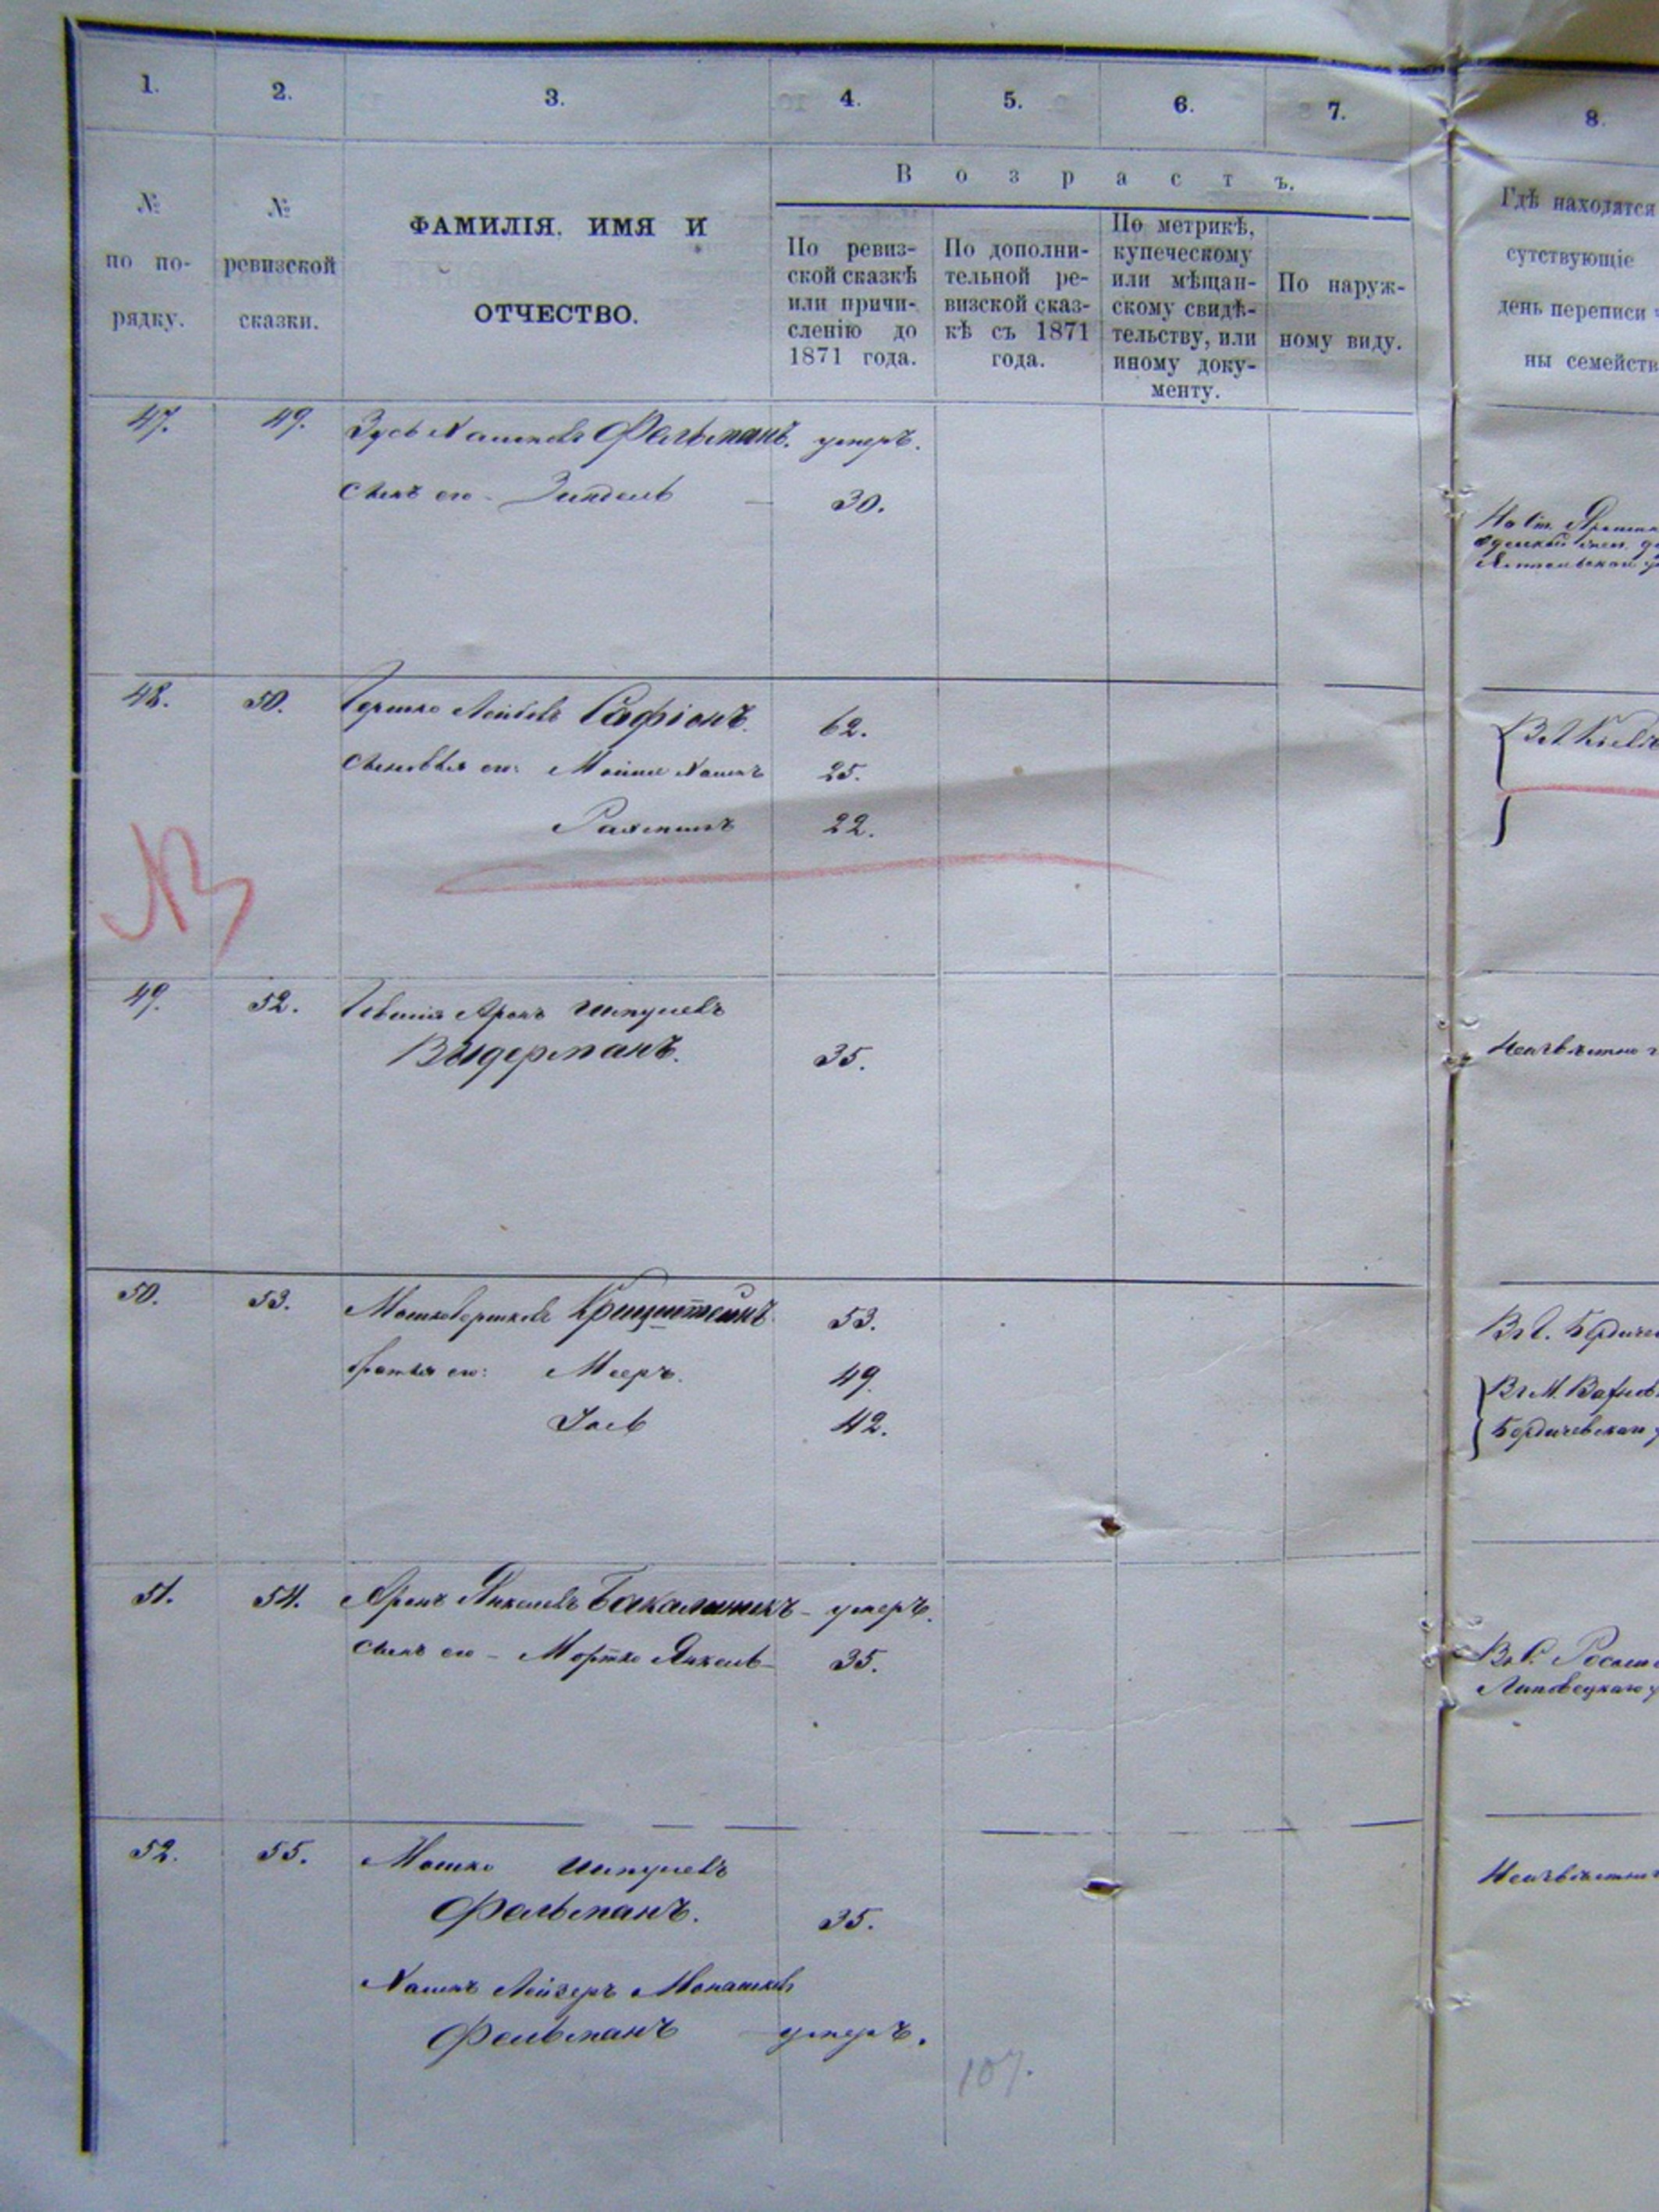 1. 2. 3. 4. 5. 6. 7. 8.
№ по по-рядку.
№ ревизской сказки.
ФАМИЛІЯ, ИМЯ И
ОТЧЕСТВО.
Возрастъ.
По ревиз-
ской сказкѣ
или причи-
сленію до
1871 года.
По дополни-
тельной ре-
визской сказ-
кѣ съ 1871
года.
По метрикѣ,
купеческому
или мѣщан-
скому свидѣ-
тельству, или
иному доку-
менту.
По наруж-
ному виду.
Гдѣ находятся
сутствующіе
день переписи
ны семейств
47. 49. Зусь Хаимовъ Фельманъ. умеръ.
Сынъ его - Зиндель — 30.
48. 50. Гершко Лейбовъ Сафіанъ. 62.
Сыновья его: Мойше Хаимъ 25.
Рахмиль 22.
NB
49. 52. Аронъ Шмулевъ
Видерманъ. 35.
Неизвѣстно
50. 53. Мошко Гершковъ Крищштейнъ 53.
братья его: Мееръ. 49.
Іось 42.
Бердичевскаго
51. 54. Аронъ Янкелевъ Бакалинникъ - умеръ.
Сынъ его - Мортко Янкель - 35.
Липовецкаго у
52. 55. Мошко Шмулевъ
Фельманъ. 35.
Неизвѣстно
Хаимъ Лейзеръ Монашковъ
Фельманъ умеръ.
107.